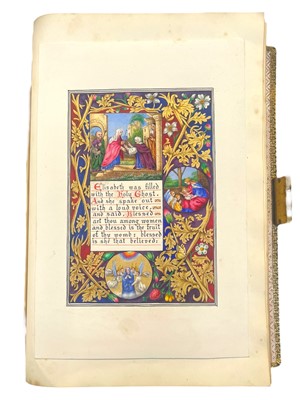 Elizabeth was filled
with the Holy Ghost,
And she spake out
with a loud voice,
and said, Blessed
art thou among women
and blessed is the fruit
of thy womb: blessed
is she that believed: